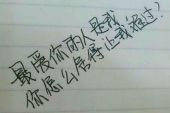 最爱你的人是我
你怎么舍得让我难过?